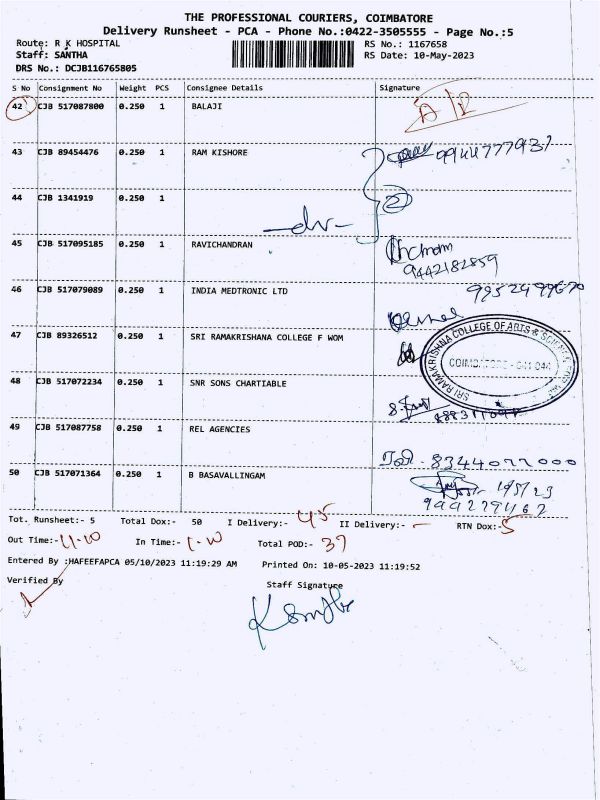 THE PROFESSIONAL COURIERS, COIMBATORE
Delivery Runsheet - PCA - Phone No.:0422-3505555 - Page No.:5
Route: R K HOSPITAL
RS No.: 1167658
Staff: SANTHA
RS Date: 10-May-2023
DRS No.: DCJB116765805
S No Consignment No Weight PCS Consignee Details Signature
42 CJB 517087800 0.250 1 BALAJI
43 CJB 89454476 0.250 1 RAM KISHORE
44 CJB 1341919 0.250 1
2
45 CJB 517095185 0.250 1 RAVICHANDRAN
9442182859
46 CJB 517079089 0.250 1 INDIA MEDTRONIC LTD
47 CJB 89326512 0.250 1 SRI RAMAKRISHANA COLLEGE F WOM
SRI RAMAKRISHNA COLLEGE OF ARTS & SCIENCE
COIMBATORE - 641 044
48 CJB 517072234 0.250 1 SNR SONS CHARTIABLE
49 CJB 517087758 0.250 1 REL AGENCIES
8344077000
50 CJB 517071364 0.250 1 B BASAVALLINGAM
Tot. Runsheet:- 5 Total Dox:- 50 I Delivery:- 45 II Delivery:- - RTN Dox:- 5
Out Time:- 11-10 In Time:- 1-10 Total POD:- 37
Entered By :HAFEEFAPCA 05/10/2023 11:19:29 AM Printed On: 10-05-2023 11:19:52
Verified By Staff Signature